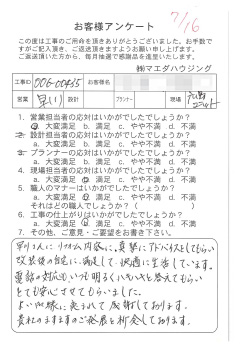 7/16
お客様アンケート
この度は工事のご用命を頂きありがとうございました。お手数で
すがご記入頂き、ご返送頂きますようお願い申し上げます。
ご返送頂いた方から、毎月抽選で感謝品を進呈いたします。
㈱マエダハウジング
工事ID 006-00435 お客様名
営業 早川 設計 プランナー 現場
1. 営業担当者の応対はいかがでしたでしょうか？
a. 大変満足 b. 満足 c. やや不満 d. 不満
2. 設計担当者の応対はいかがでしたでしょうか？
a. 大変満足 b. 満足 c. やや不満 d. 不満
3. プランナーの応対はいかがでしたでしょうか？
a. 大変満足 b. 満足 c. やや不満 d. 不満
4. 現場担当者の応対はいかがでしたでしょうか？
a. 大変満足 b. 満足 c. やや不満 d. 不満
5. 職人のマナーはいかがでしたでしょうか？
a. 大変満足 b. 満足 c. やや不満 d. 不満
それはどの職人でしょうか？( )
6. 工事の仕上がりはいかがでしたでしょうか？
a. 大変満足 b. 満足 c. やや不満 d. 不満
7. その他、ご意見・ご要望をお書き下さい。
早川さんに リフォーム内容に、真摯にアドバイスをしてもらい
改装後の自宅に、満足して、快適に生活しています。
電話の対応も いつも明るくハキハキと答えてもらい
とても安心させてもらいました。
よい出縁に恵まれて感謝しております。
貴社のますますのご発展を祈念しております。